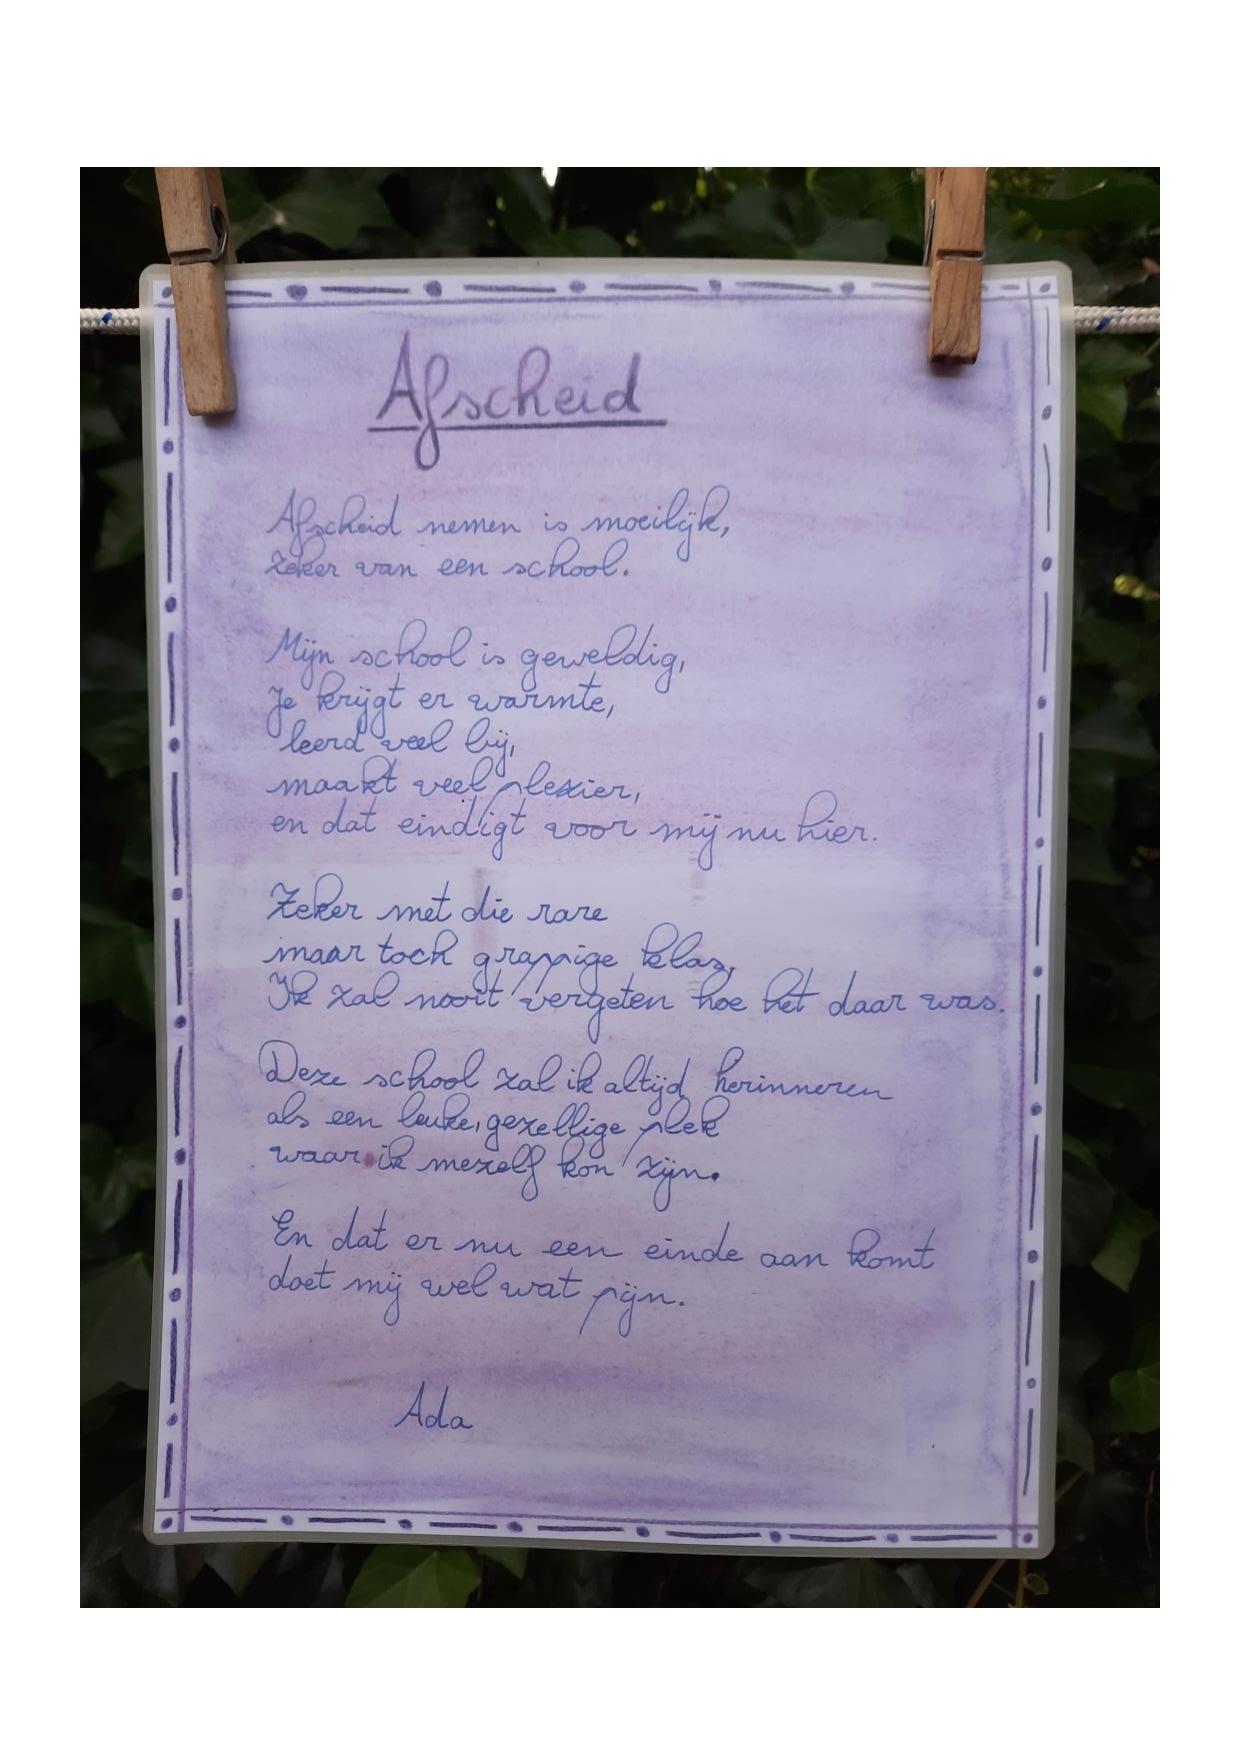 Afscheid
Afscheid nemen is moeilijk,
zeker van een school.
Mijn school is geweldig,
Je krijgt er warmte,
leerd veel bij,
maakt veel plezier,
en dat eindigt voor mij nu hier.
Zeker met die rare
maar toch grappige klas,
Ik zal nooit vergeten hoe het daar was.
Deze school zal ik altijd herinneren
als een leuke, gezellige plek
waar ik mezelf kon zijn.
En dat er nu een einde aan komt
doet mij wel wat pijn.
Ada